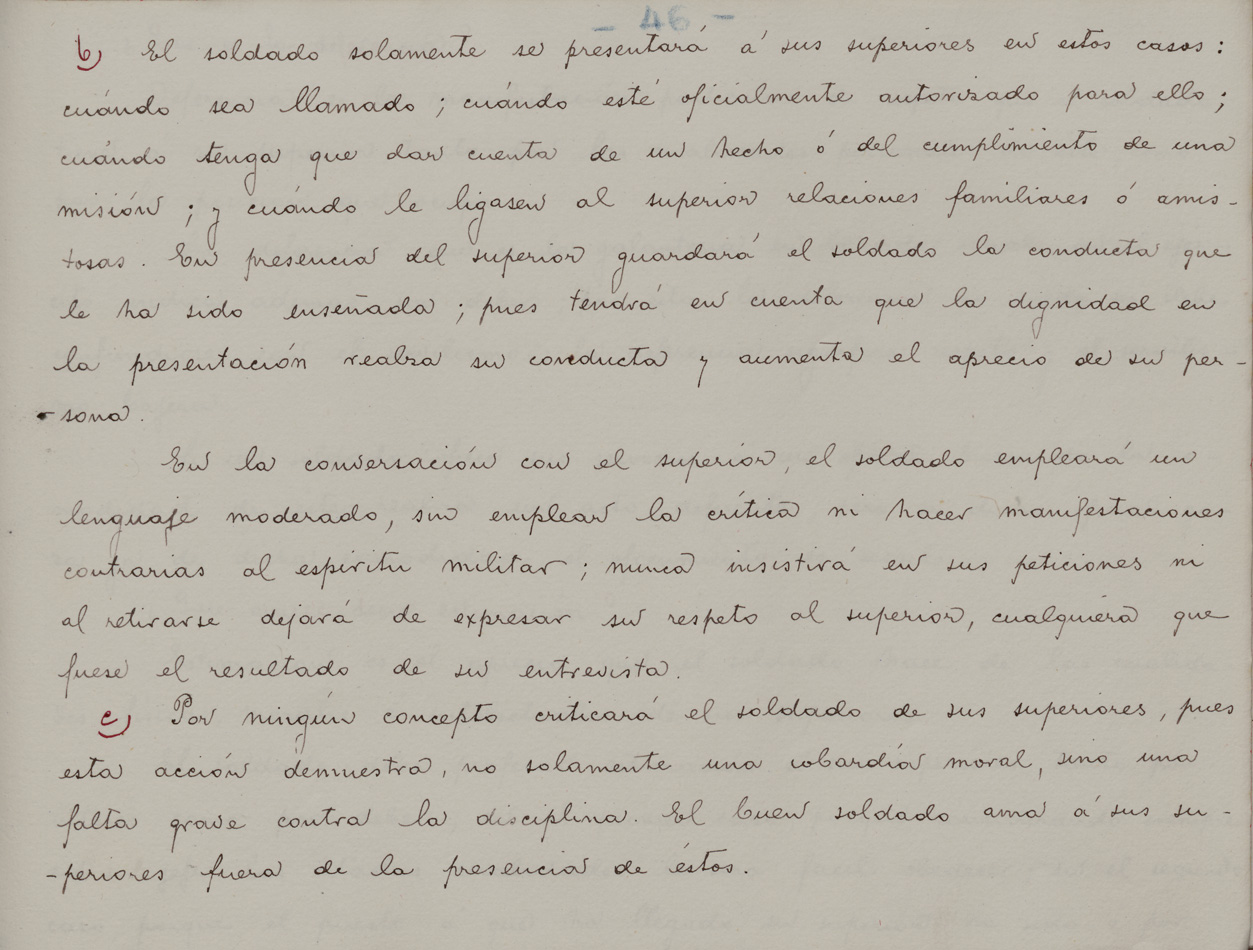 - 46 -
b) El soldado solamente se presentará á sus superiores en estos casos:
cuándo sea llamado; cuándo esté oficialmente autorizado para ello;
cuándo tenga que dar cuenta de un hecho ó del cumplimiento de una
misión; y cuándo le ligasen al superior relaciones familiares ó amis-
tosas. En presencia del superior guardará el soldado la conducta que
le ha sido enseñada; pues tendrá en cuenta que la dignidad en
la presentación realza su conducta y aumenta el aprecio de su per-
-sona.
En la conversación con el superior, el soldado empleará un
lenguaje moderado, sin emplear la crítica ni hacer manifestaciones
contrarias al espíritu militar; nunca insistirá en sus peticiones ni
al retirarse dejará de expresar su respeto al superior, cualquiera que
fuese el resultado de su entrevista.
c) Por ningún concepto criticará el soldado de sus superiores, pues
esta acción demuestra, no solamente una cobardía moral, sino una
falta grave contra la disciplina. El buen soldado ama á sus su-
-periores fuera de la presencia de éstos.